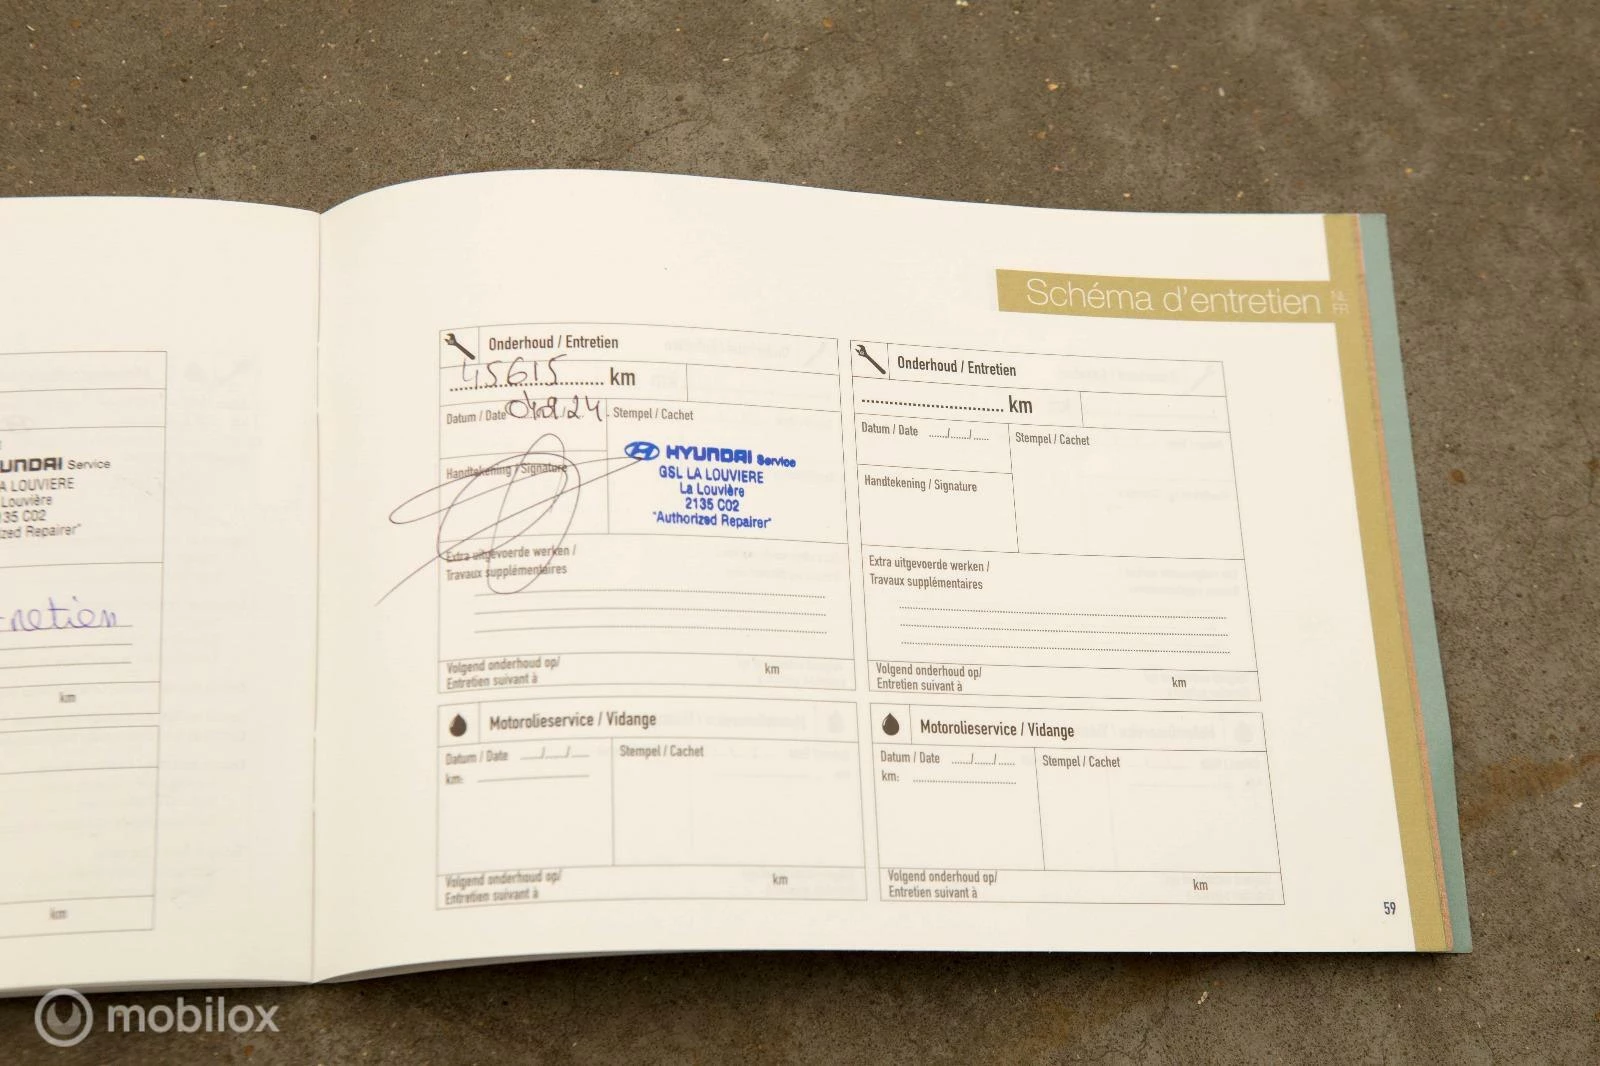 Schéma d'entretien
NL
FR
UNDAI Service
A LOUVIERE
Louvière
135 C02
zed Repairer"
retien
km
km
Onderhoud / Entretien
45615 km
Datum / Date
Stempel / Cachet
HYUNDAI Service
GSL LA LOUVIERE
La Louvière
2135 C02
"Authorized Repairer"
Handtekening / Signature
Extra uitgevoerde werken /
Travaux supplémentaires
Volgend onderhoud op/
Entretien suivant à
km
Onderhoud / Entretien
km
Datum / Date ....../....../......
Stempel / Cachet
Handtekening / Signature
Extra uitgevoerde werken /
Travaux supplémentaires
Volgend onderhoud op/
Entretien suivant à
km
Motorolieservice / Vidange
Datum / Date ....../....../......
Stempel / Cachet
km:
Volgend onderhoud op/
Entretien suivant à
km
Motorolieservice / Vidange
Datum / Date ....../....../......
Stempel / Cachet
km:
Volgend onderhoud op/
Entretien suivant à
km
59
mobilox